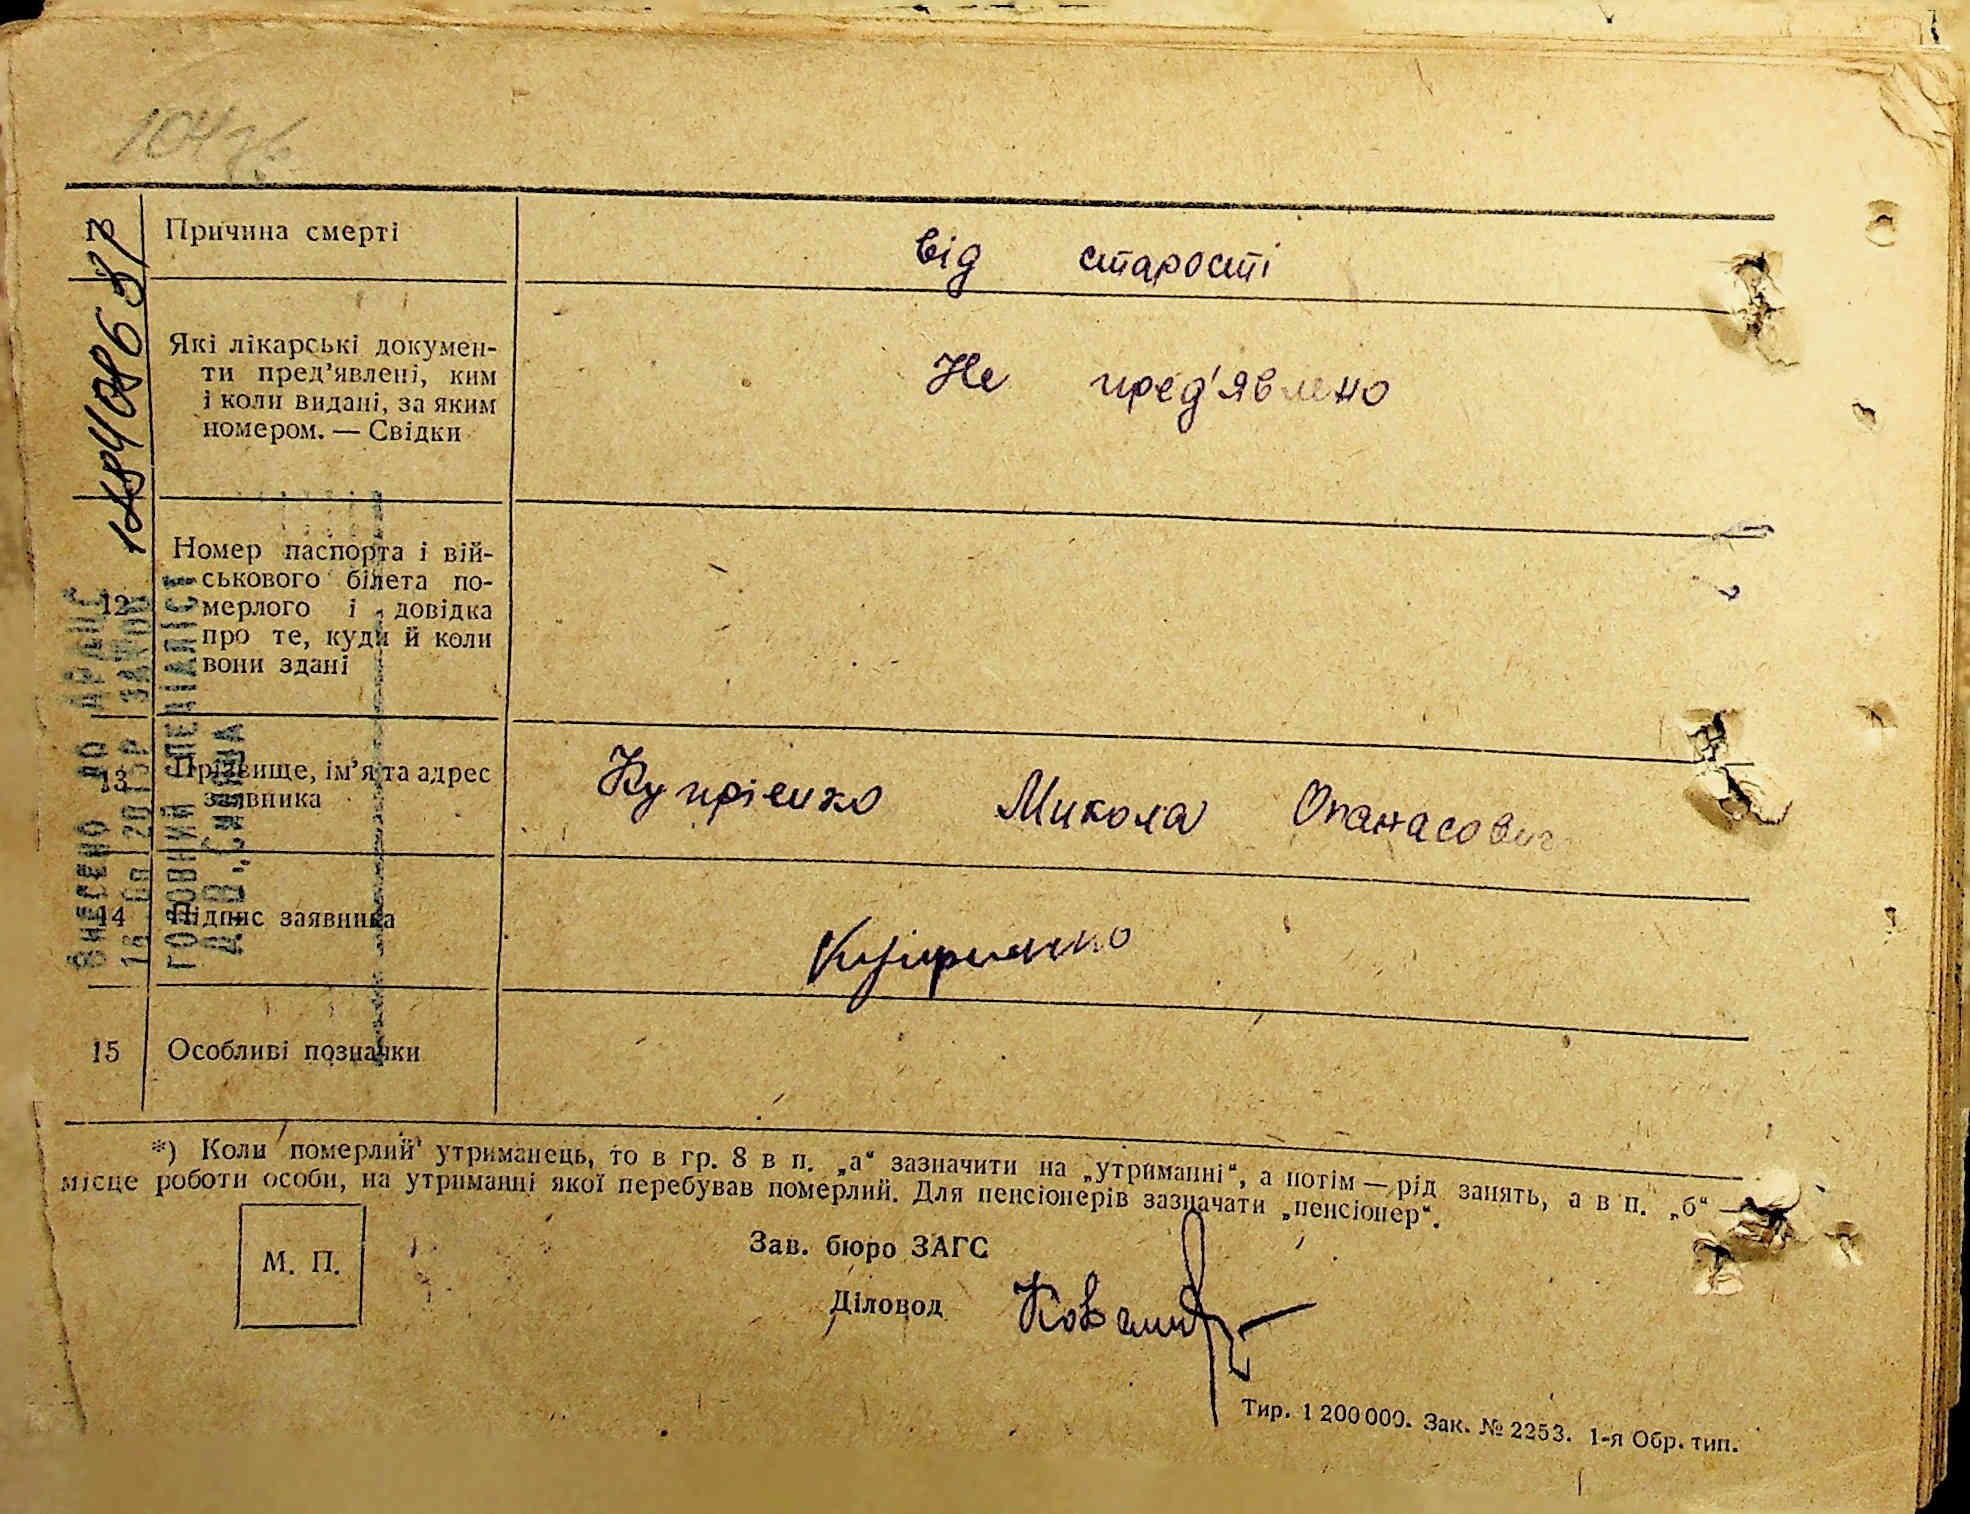 Причина смерті
від старості
Які лікарські докумен-
ти пред'явлені, ким
і коли видані, за яким
номером. — Свідки
Не пред'явлено
12
Номер паспорта і вій-
ськового білета по-
мерлого і довідка
про те, куди й коли
вони здані
13
Прізвище, ім'я та адрес
заявника
Купрієнко Микола Опанасович
14
Підпис заявника
15
Особливі позначки
*) Коли померлий утриманець, то в гр. 8 в п. „а“ зазначити на „утриманні“, а потім — рід занять, а в п. „б“ —
місце роботи особи, на утриманні якої перебував померлий. Для пенсіонерів зазначати „пенсіонер“.
М. П.
Зав. бюро ЗАГС
Діловод
Тир. 1 200 000. Зак. № 2253. 1-я Обр. тип.
ВНЕСЕНО ДО
ГОЛОВНИЙ СПЕЦІАЛІСТ